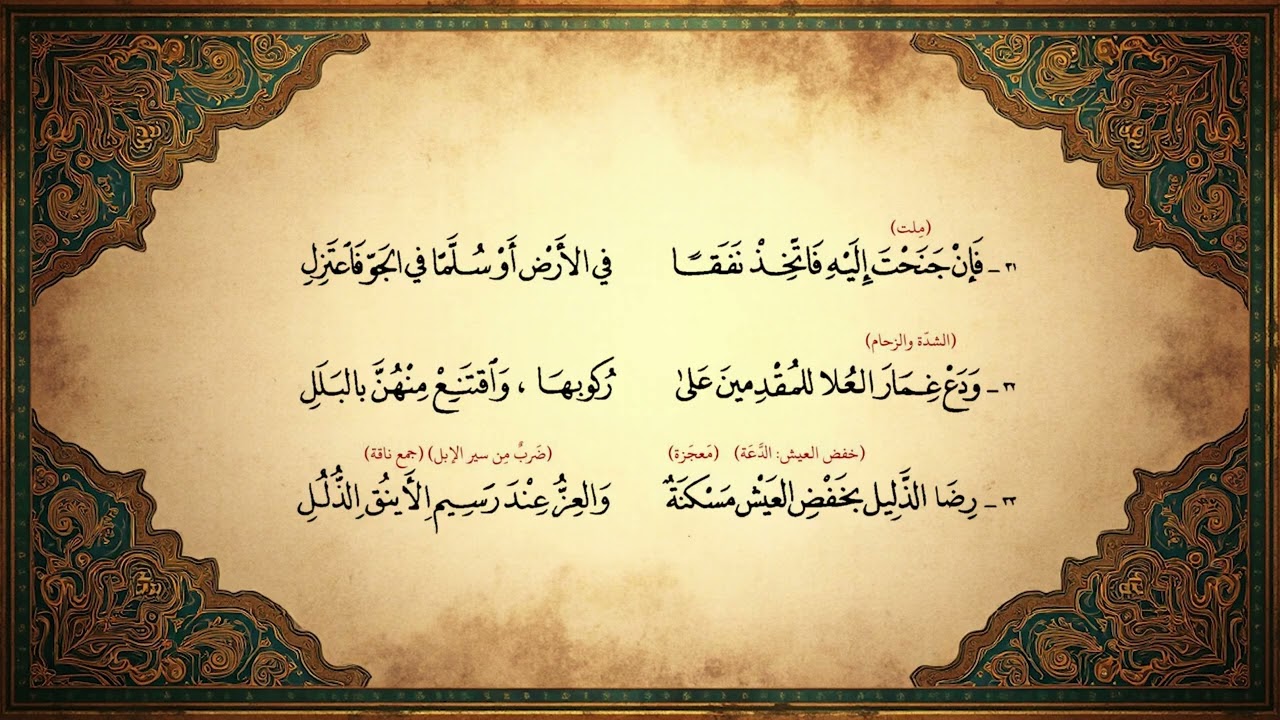 (مِلت)
٣١ - فَإِنْ جَنَحْتَ إِلَيْهِ فَاتَّخِذْ نَفَقًا في الأَرْضِ أَوْ سُلَّمًا في الجَوِّ فَاعْتَزِلِ
(الشدّة والزحام)
٣٢ - وَدَعْ غِمَارَ العُلا للمُقْدِمينَ عَلىٰ رُكوبِهَا ، وَاقْتَنِعْ مِنْهُنَّ بالبَلَلِ
(خفض العيش: الدَّعَة) (مَعجَزة) (ضَربٌ مِن سير الإبل) (جمع ناقة)
٣٣ - رِضَا الذَّلِيلِ بخَفْضِ العَيْشِ مَسْكَنَةٌ وَالعِزُّ عِنْدَ رَسِيمِ الأَينُقِ الذُّلُلِ